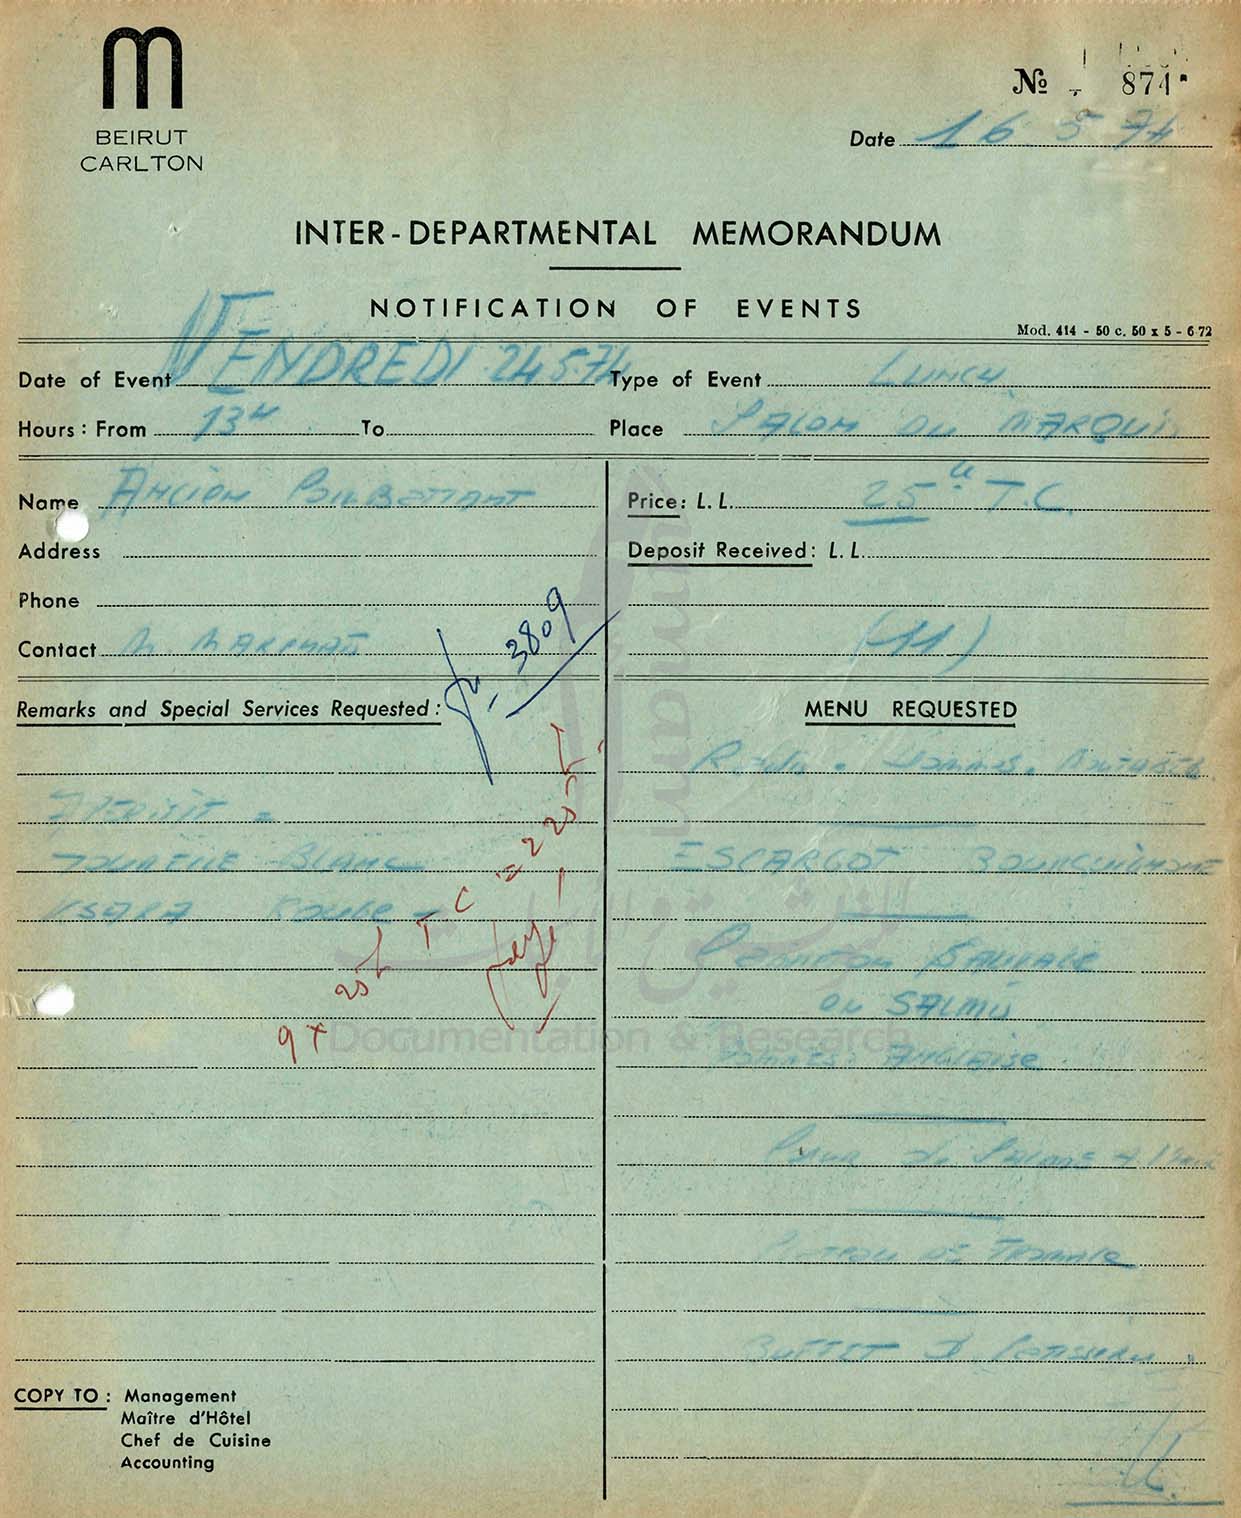 BEIRUT
CARLTON
№ 874
Date 16 5 74
INTER-DEPARTMENTAL MEMORANDUM
NOTIFICATION OF EVENTS
Mod. 414 - 50 c. 50 x 5 - 6 72
Date of Event VENDREDI 24 5 74 Type of Event LUNCH
Hours: From 13H To Place SALON DU MARQUIS
Name
Price: L. L. 25 T.C.
Address
Deposit Received: L. L.
Phone
3809
Contact M
(11)
Remarks and Special Services Requested:
MENU REQUESTED
APERITIF =
TOURELLE BLANC
ESCARGOT BOURGUIGNONE
KSARA ROUGE
9 x 25 T C = 225
OU SALMIS
POMMES ANGLAISE
PLATEAU DE FROMAGE
BUFFET DE PATISSERIE
COPY TO: Management
Maître d'Hôtel
Chef de Cuisine
Accounting
Umam
للتوثيق والأبحاث
Documentation & Research